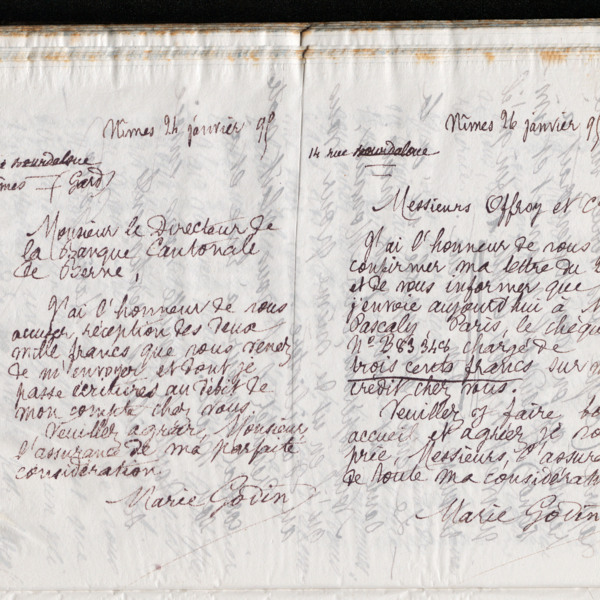 Nîmes 24 janvier 95
Bourdaloue
Nîmes (Gard)
Monsieur le Directeur de
la Banque Cantonale
de Berne,
J'ai l'honneur de vous
accuser réception des deux
mille francs que vous venez
de m'envoyer et dont je
passe écritures au débit de
mon compte chez vous.
Veuillez agréer, Monsieur
l'assurance de ma parfaite
considération
Marie Godin
Nîmes 26 janvier 95
14 rue Bourdaloue
Messieurs Offroy et C
J'ai l'honneur de vous
confirmer ma lettre du
et de vous informer que
j'envoie aujourd'hui à
Pascaly, Paris, le chèque
No B83348 chargé de
trois cents francs sur
crédit chez vous.
Veuillez y faire bon
accueil et agréer je vous
prie, Messieurs, l'assura
de toute ma considérat
Marie Godin